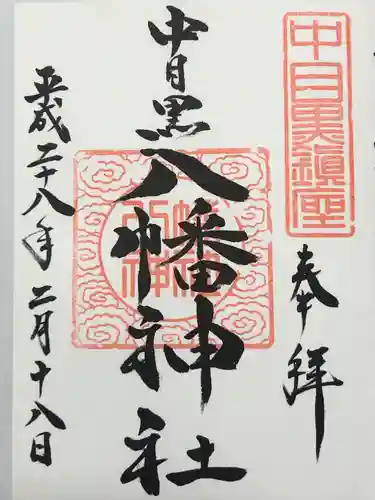 中目黒鎮座
奉拝
中目黒
八幡神社
八幡
神社
平成二十八年二月十八日